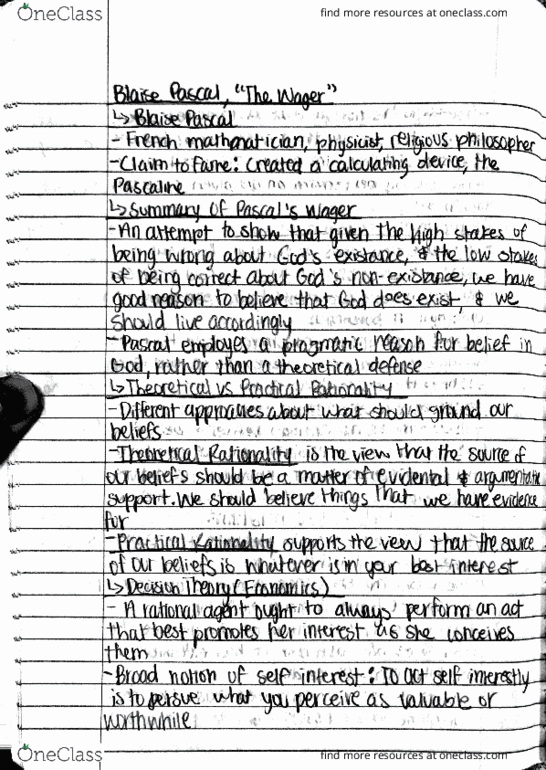 OneClass
find more resources at oneclass.com
Blaise Pascal, "The Wager"
↳ Blaise Pascal
- French mathmatician, physicist, religious philosopher
- Claim to fame: Created a calculating device, the
Pascaline
↳ Summary of Pascal's Wager
- An attempt to show that given the high stakes of
being wrong about God's existance, & the low stakes
of being correct about God's non-existance, we have
good reason to believe that God does exist, & we
should live accordingly
- Pascal employes a pragmatic reason for belief in
God, rather than a theoretical defense
↳ Theoretical vs Practical Rationality
- Different approaches about what should ground our
beliefs
- Theoretical Rationality is the view that the source of
our beliefs should be a matter of evidental & argumentative
support. We should believe things that we have evidence
for
- Practical Rationality supports the view that the source
of our beliefs is whatever is in your best interest
↳ Decision Theory (Economics)
- A rational agent ought to always perform an act
that best promotes her interest as she conceives
them
- Broad notion of self interest: To act self interestly
is to persue what you perceive as valuable or
worthwhile
OneClass
find more resources at oneclass.com